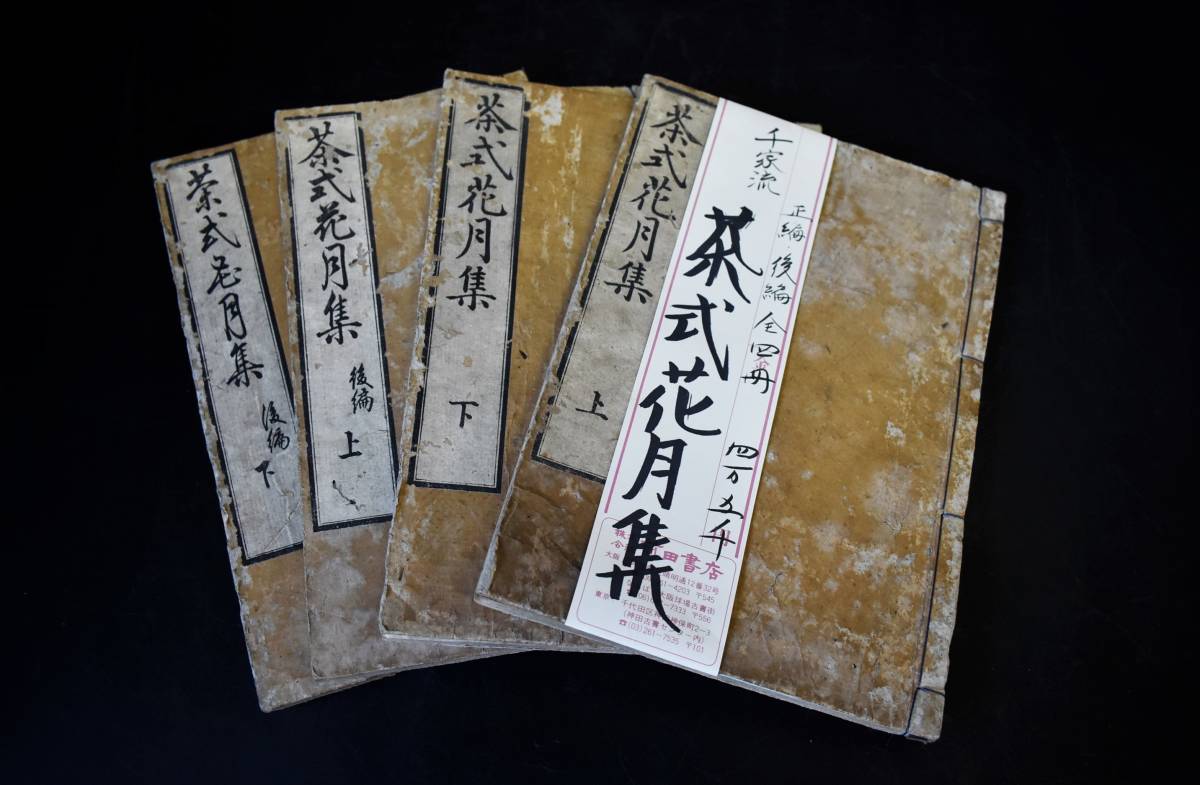 千家流
正編・後編 全四冊 四万五千
茶式花月集
田書店
通12番32号
51-4203 〒545
大阪球場古書街
7333 〒556
東京
千代田区
神保町2-3
(神田古書センター内)
☎(03)261-7535 〒101
茶式花月集
上
茶式花月集
下
茶式花月集
後編
上
茶式花月集
後編
下